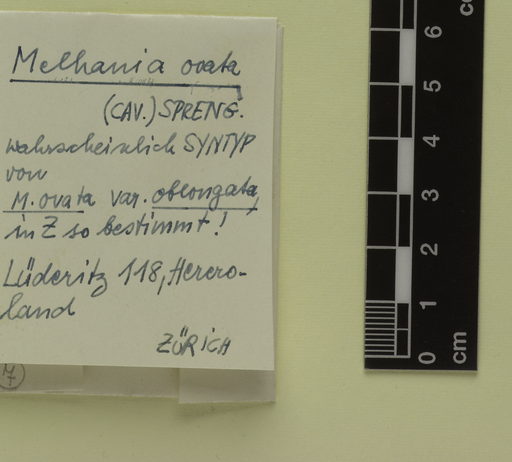 Melhania ovata
(CAV.) SPRENG.
wahrscheinlich SYNTYP
von
M. ovata var. oblongata,
in Z so bestimmt!
Lüderitz 118, Herero-
land
ZÜRICH
M
7
6
5
4
3
2
1
0
cm